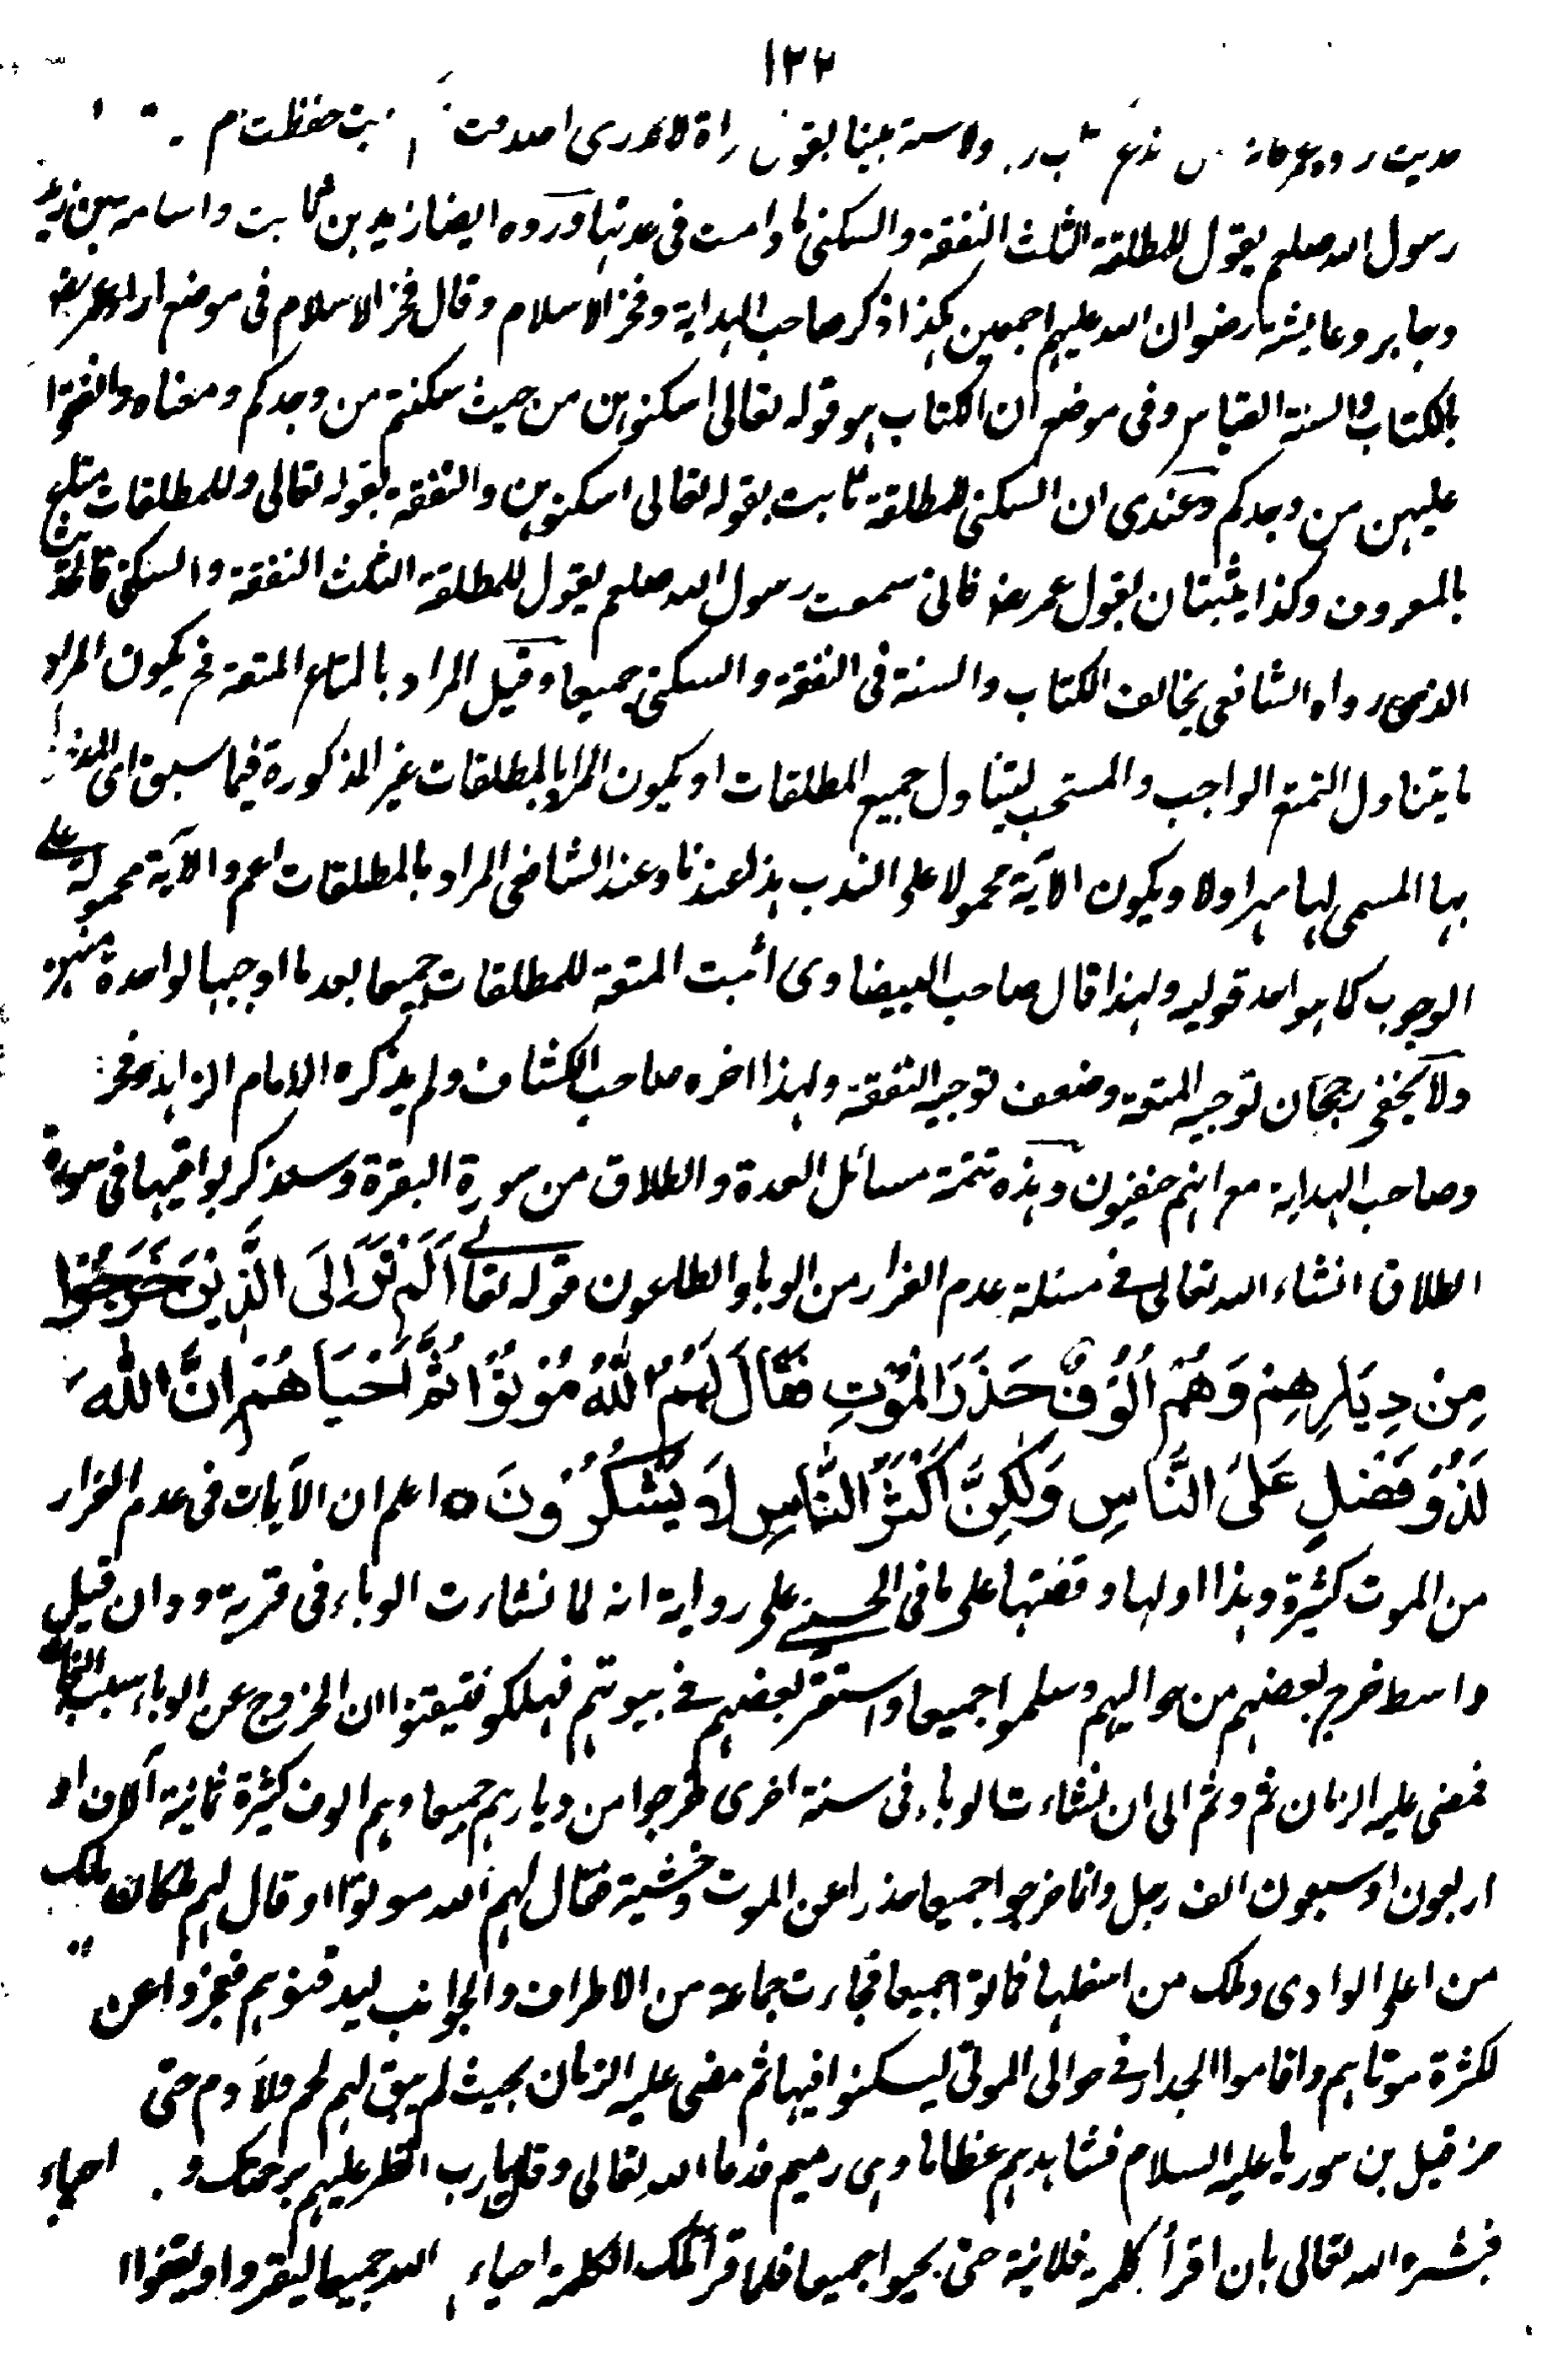 ١٢٢
ولا سنة نبينا بقول امرأة لا ندري اصدقت ام حفظت ام
رسول الله صلعم يقول للمطلقة الثلث النفقة والسكنى ما دامت في عدتها وروه ايضا زيد بن ثابت واسامه بن زيد
وجابر وعايشه رضوان الله عليهم اجمعين هكذا ذكر صاحب الهداية وفخر الاسلام وقال فخر الاسلام في موضع اراد عمر رض
بالكتاب والسنة القياس وفي موضع ان الكتاب هو قوله تعالى اسكنوهن من حيث سكنتم من وجدكم ومعناه وانفقوا
عليهن من وجدكم وعندي ان السكنى للمطلقة ثابت بقوله تعالى اسكنوهن والنفقة بقوله تعالى وللمطلقات متاع
بالمعروف وكذا يثبتان بقول عمر رض فاني سمعت رسول الله صلعم يقول للمطلقة الثلث النفقة والسكنى فالحديث
الذي رواه الشافعي يخالف الكتاب والسنة في النفقة والسكنى جميعا وقيل المراد بالمتاع المتعة فح يكون المراد
ما يتناول التمتع الواجب والمستحب ليتناول جميع المطلقات او يكون المراد بالمطلقات غير المذكورة فيما سبق اي
بها المسمى لها مهرا ولا ويكون الآية محمولا على الندب هذا عندنا وعند الشافعي المراد بالمطلقات اعم والآية محمولة على
الوجوب كما هو احد قوليه ولهذا قال صاحب البيضاوي اثبت المتعة للمطلقات جميعا بعد ما اوجبها لواحدة منهن
ولا يخفى رجحان توجيه المتعة وضعف توجيه النفقة ولهذا اخره صاحب الكشاف ولم يذكره الامام الزاهد وفخر
وصاحب الهداية مع انهم حنفيون وهذه تتمة مسائل العدة والطلاق من سورة البقرة وسنذكر بواقيها في سورة
الطلاق انشاء الله تعالى في مسئلة عدم الفرار من الوبا والطاعون قوله تعالى اَلَمْ تَرَ اِلَى الَّذِيْنَ خَرَجُوْا
مِنْ دِيَارِهِمْ وَهُمْ اُلُوْفٌ حَذَرَ الْمَوْتِ فَقَالَ لَهُمُ اللّٰهُ مُوْتُوْا ثُمَّ اَحْيَاهُمْ اِنَّ اللّٰهَ
لَذُوْ فَضْلٍ عَلَى النَّاسِ وَلٰكِنَّ اَكْثَرَ النَّاسِ لَا يَشْكُرُوْنَ ٥ اعلم ان الآيات في عدم الفرار
من الموت كثيرة وهذا اولها وقصتها على ما في الحسيني على رواية انه لما نشاءت الوباء في قرية ودان قيل
واسط خرج بعضهم من حواليهم وسلموا جميعا واستقر بعضهم في بيوتهم فهلكو فتيقنوا ان الخروج عن الوباء سبب النجاة
فمضى عليه الزمان ثم وثم الى ان نشاءت الوباء في سنة اخرى فخرجوا من ديارهم جميعا وهم الوف كثيرة ثمانية آلاف او
اربعون او سبعون الف رجل وانما خرجوا جميعا حذرا عن الموت وخشية فقال لهم الله موتوا او قال لهم ملكان ملك
من اعلى الوادي وملك من اسفلها فماتوا جميعا فجاءت جماعة من الاطراف والجوانب ليدفنوهم فعجزوا عن
لكثرة موتاهم واقاموا الجدار في حوالى الموتى ليسكنوا فيها ثم مضى عليه الزمان بحيث لم يبق لهم لحم ولا دم حتى
حزقيل بن سوريا عليه السلام فشاهدهم عظاما وهي رميم فدعا الله تعالى وقال يا رب انظر عليهم برحمتك و احياء
فبشره الله تعالى بان اقرأ كلمة فلانية حتى يحيوا جميعا فلما قرأ تلك الكلمة احياءهم الله جميعا ليقروا ويتقوا